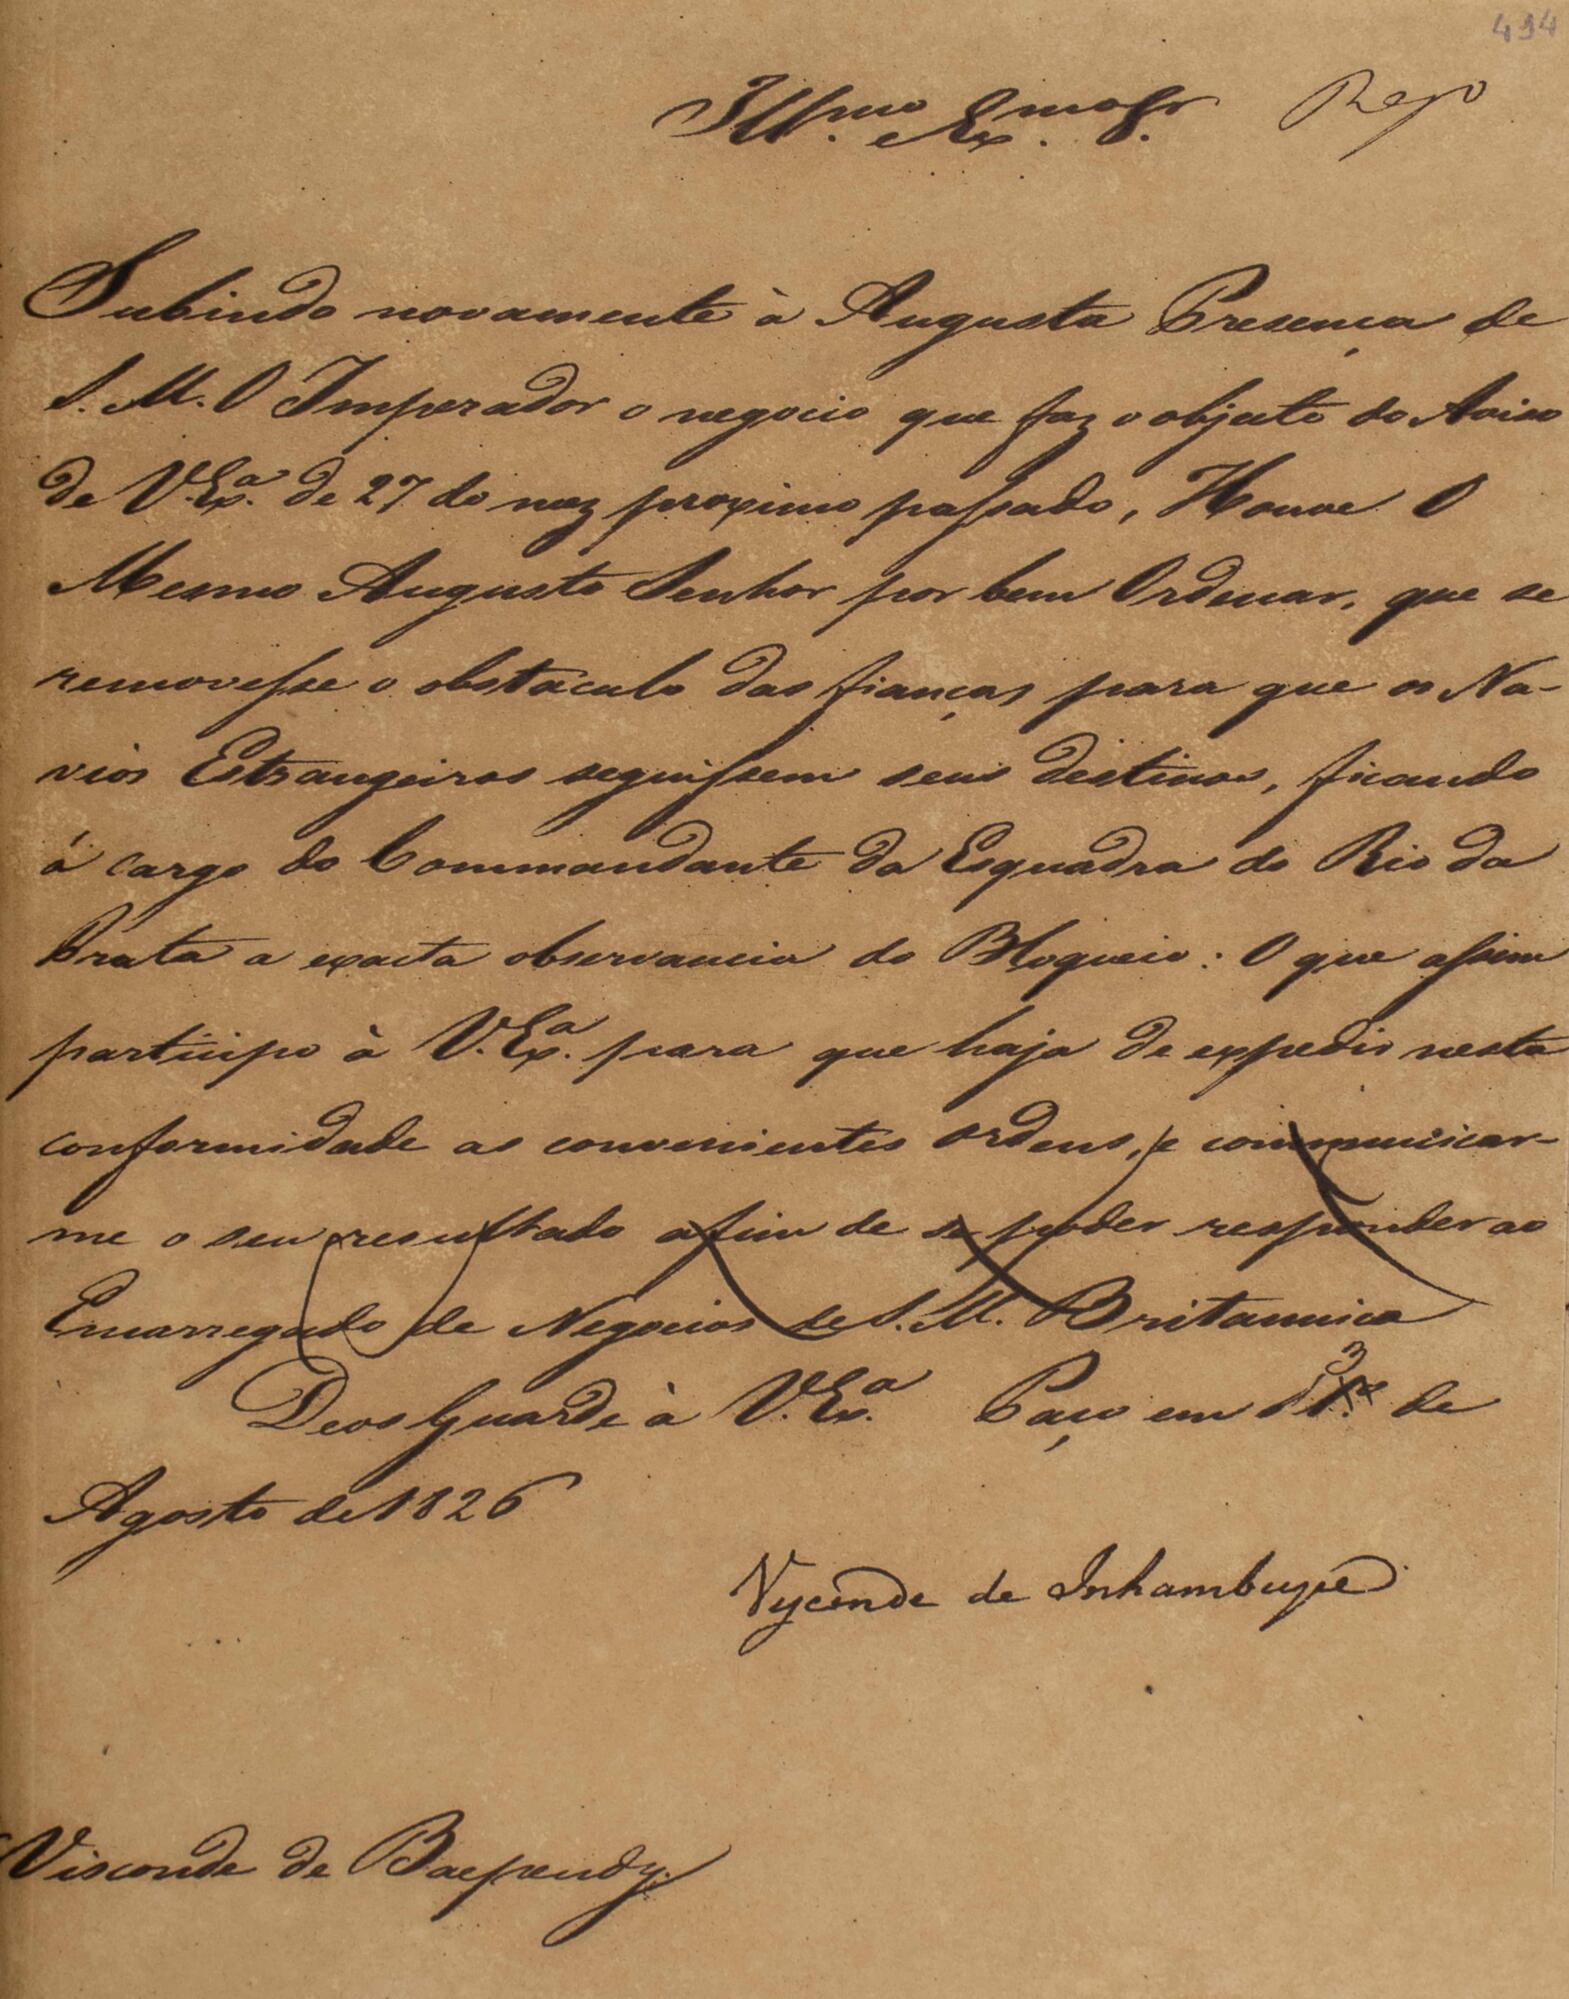 494
Illmo. e Exmo. Sr.
Subindo novamente à Augusta Presença de
S. M. O Imperador o negocio que faz o objecto do Aviso
de V. Exa. de 27 do mez proximo passado, Houve O
Mesmo Augusto Senhor por bem Ordenar, que se
removesse o obstaculo das fianças para que os Na-
vios Estrangeiros seguissem seus destinos, ficando
á cargo do Commandante da Esquadra do Rio da
Prata a exacta observancia do Bloqueio: O que assim
participo à V. Exa. para que haja de expedir nesta
conformidade as convenientes ordens, e communicar-
me o seu resultado afim de se poder responder ao
Encarregado de Negocios de S. M. Britannica
Deos Guarde à V. Exa. Paço em 3 de
Agosto de 1826
Visconde de Inhambupe
Visconde de Baependy.